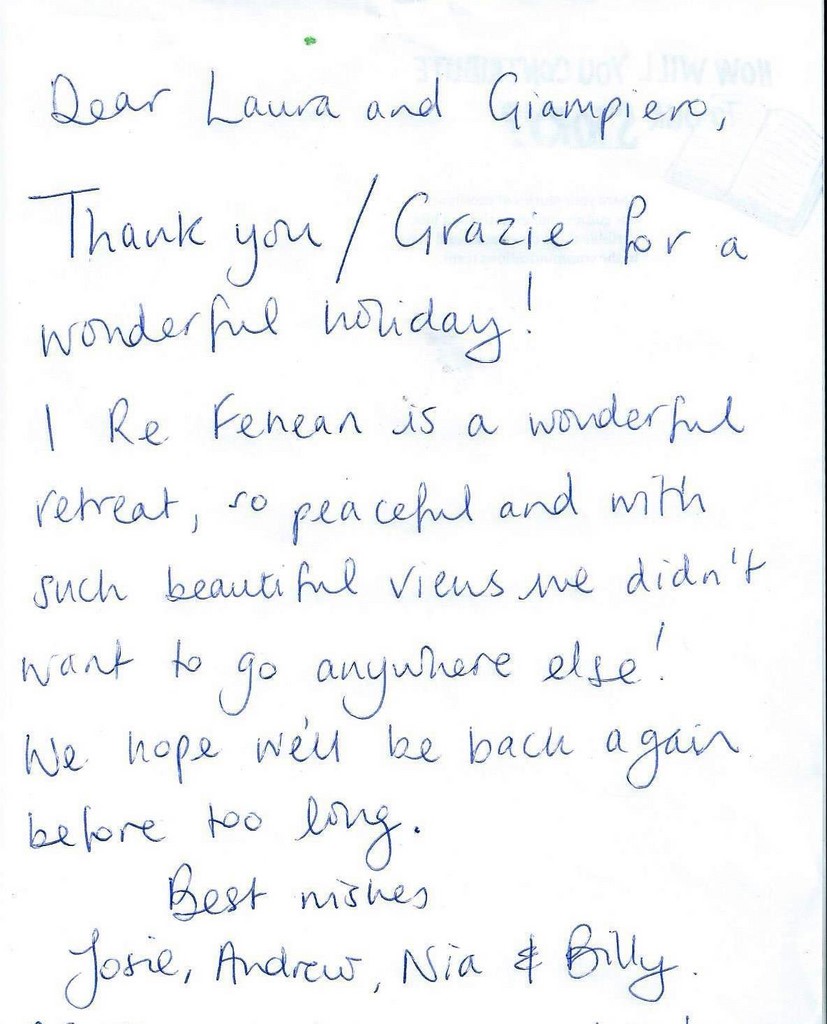 Dear Laura and Giampiero,
Thank you / Grazie for a
wonderful holiday!
I Re Fenean is a wonderful
retreat, so peaceful and with
such beautiful views we didn't
want to go anywhere else!
We hope we'll be back again
before too long.
Best wishes
Josie, Andrew, Nia & Billy.